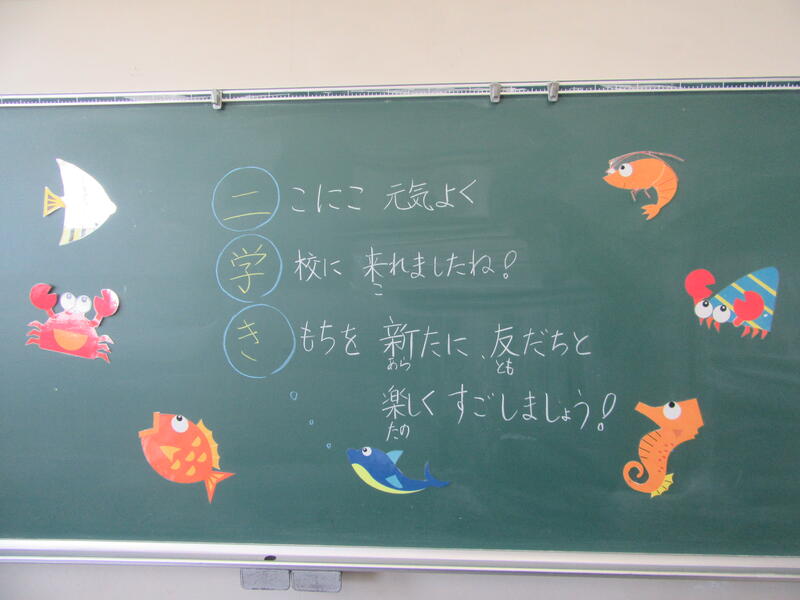 二こにこ 元気よく
学校に 来れましたね!
こ
きもちを 新たに、友だちと
あら とも
楽しく すごしましょう!
たの